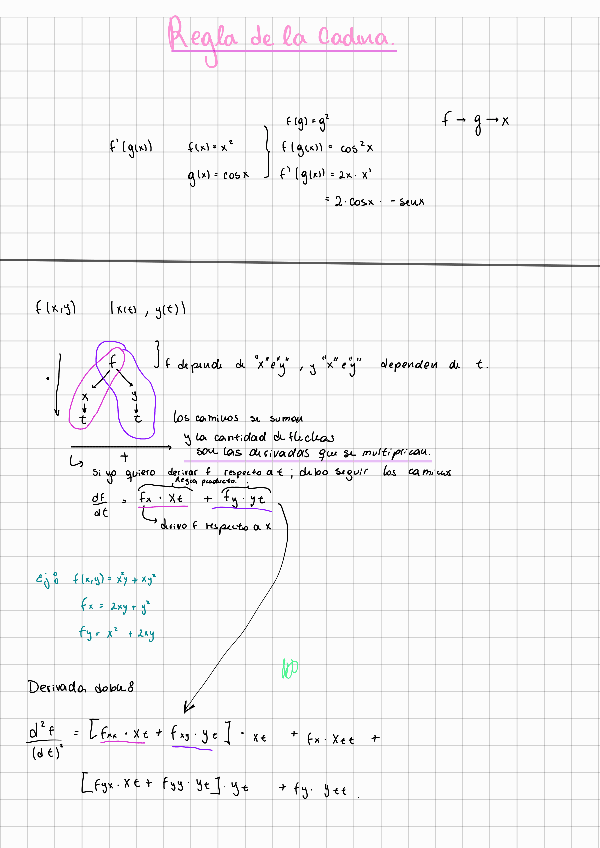 Regla de la Cadena.
f(g) = g²
f → g → x
f'(g(x)) f(x) = x² f(g(x)) = cos²x
g(x) = cosx f'(g(x)) = 2x · x'
= 2·cosx · -senx
f(x,y) (x(t), y(t))
f
f depende de "x" e "y", y "x" e "y" dependen de t.
x y
t t
los caminos se suman
y la cantidad de flechas
son las derivadas que se multiplican.
+
Si yo quiero derivar f respecto a t; debo seguir los caminos
Regla producto.
df/dt = fx · xt + fy · yt
derivo f respecto a x
Ej: f(x,y) = x²y + xy²
fx = 2xy + y²
fy = x² + 2xy
Derivada doble:
d²f/(dt)² = [fxx · xt + fxy · yt] · xt + fx · xtt +
[fyx · xt + fyy · yt] · yt + fy · ytt.